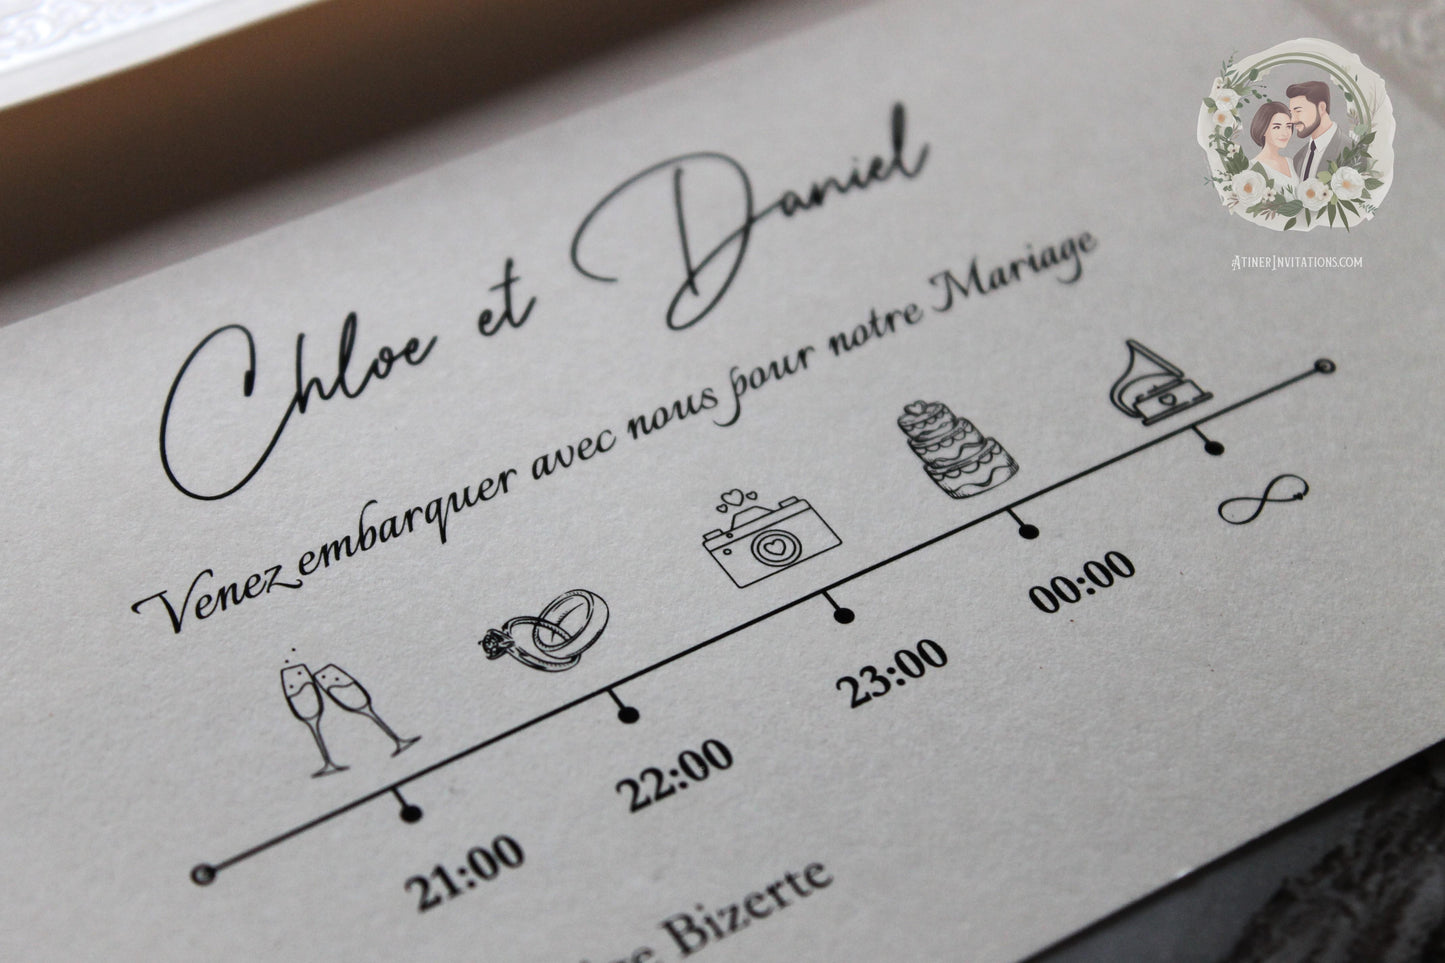 Chloe et Daniel
Venez embarquer avec nous pour notre Mariage
21:00
22:00
23:00
00:00
Bizerte
AtinerInvitations.com